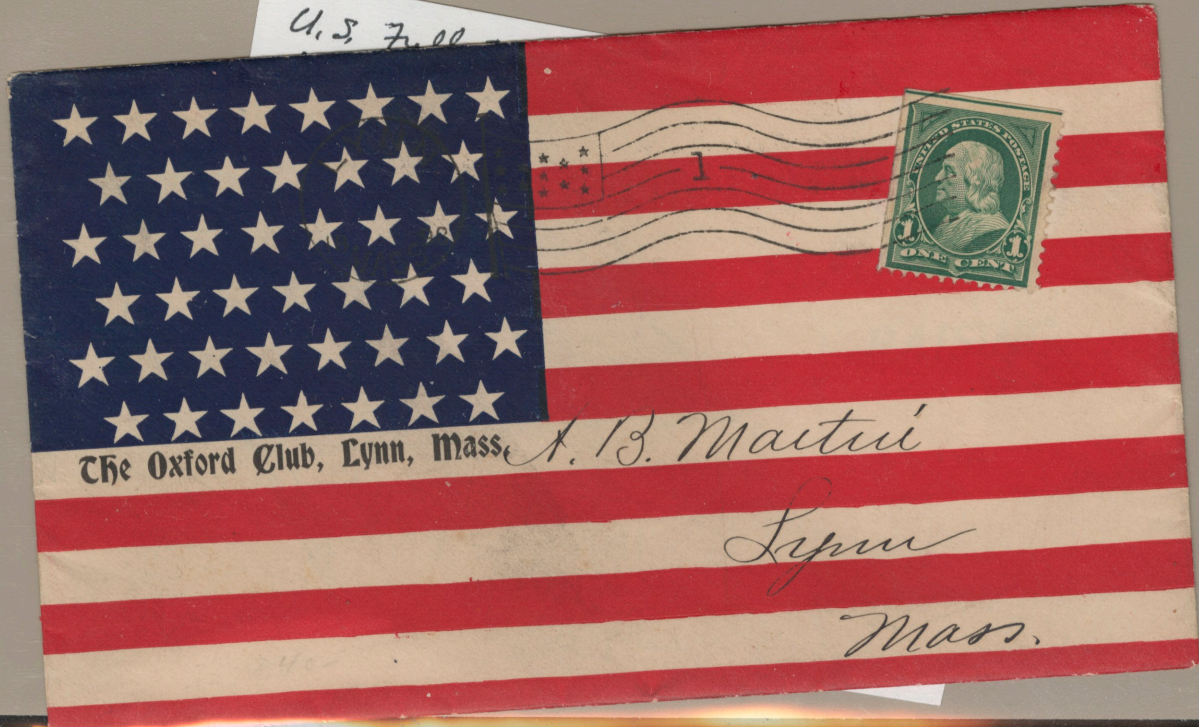 U.S. Full
1
UNITED STATES POSTAGE
1 1
ONE CENT
The Oxford Club, Lynn, Mass.
A. B. Martin
Lynn
Mass.